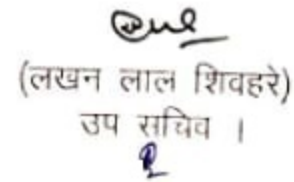 (लखन लाल शिवहरे)
उप सचिव ।